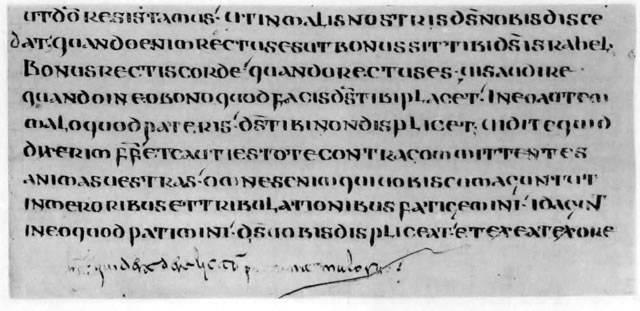 utd̄oresistamus· utinmalisnostrisd̄snobisdisce
dat· quandoenimrectusesutbonussittibid̄sisrahel·
Bonusrectiscorde· quandorectuses· uisaudire
quandoineobonoquodfacisd̄stibiplacet· ineoautem
maloquodpateris· d̄stibinondisplicet, uiditequid
dixerimf̄f̄retcautiestotecontracommittentes
animasuestras· omnesenimquiuobiscumaguntut
inmeroribusettribulationibusfatigemini· idagunt
ineoquodpatimini· d̄suobisdispliceat· etexeatexore